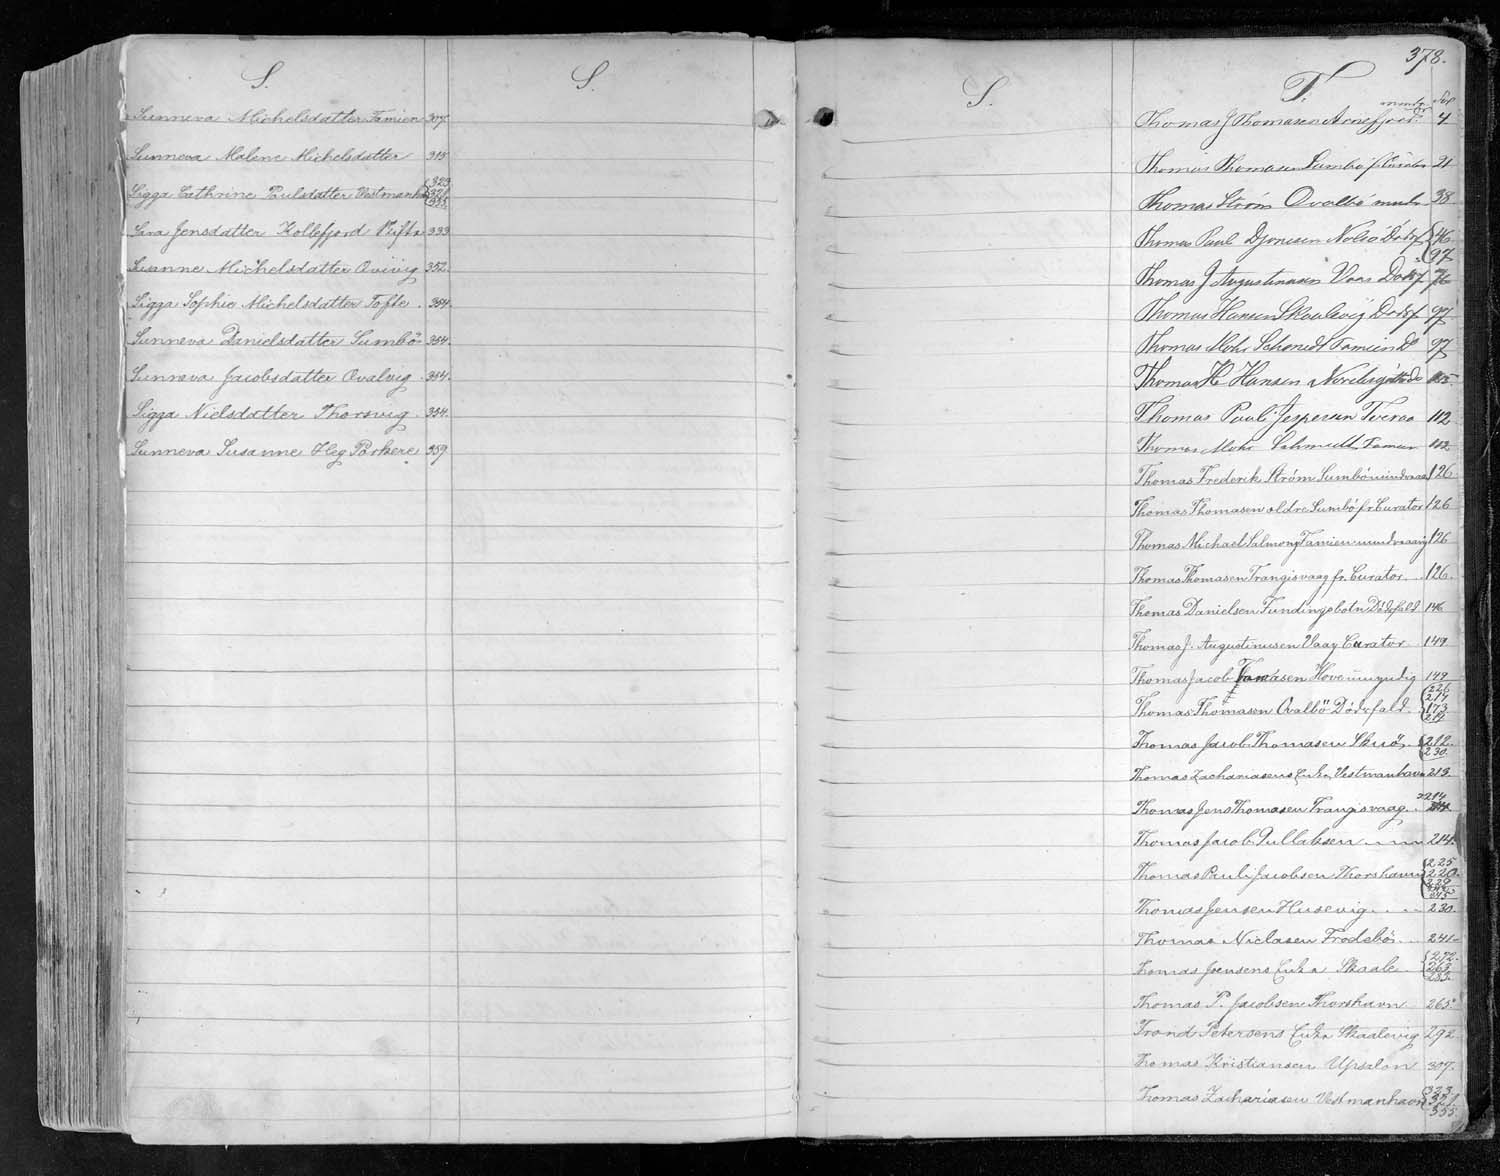 S.
Sunneva Michelsdatter Famien 307.
Sunneva Malene Michelsdatter 315
Sigga Cathrine Poulsdatter Vestmanhav 323 326 333
Sara Jensdatter Kollefjord Skifte 333
Susanne Michelsdatter Qvivig 352.
Sigga Sophie Michelsdatter Tofte. 354.
Sunneva Danielsdatter Sumbö 354.
Sunneva Jacobsdatter Qvalvig. 354.
Sigga Nielsdatter Thorsvig. 354.
Sunneva Susanne Heg Porkere 359
S.
S.
378.
T.
Fol
Thomas J Thomasen Arnefjord. 4
Thomas Thomasen Sumbö fr Curator 21
Thomas Ström Qvalbö 38
Thomas Paul Djonesen Nolsö Dödsf 46 97
Thomas J Augustinusen Vaag Dödsf 76
Thomas Hansen Skaalevig Dödsf 97
Thomas Mohr Schmidt Famien Do 97
Thomas H Hansen
Thomas Paul Jespersen Tveraa 112
Thomas Mohr Schmidt Famien 112
Thomas Frederik Ström Sumbö 126
Thomas Thomasen ældre Sumbö fr Curator 126
Thomas Michael Salmons Famien 126
Thomas Thomasen Trangisvaag fr. Curator. 126.
Thomas Danielsen Fundingsbotn Dödsfald 146
Thomas J. Augustinusen Vaag Curator 149
Thomas Jacob Hove umyndig 149
Thomas Thomasen Qvalbö Dödsfald. 226 217 173 219
Thomas Jacob Thomasen Skuö. 212. 230.
Thomas Zachariasens Enke Vestmanhavn 213
Thomas Jens Thomasen Trangisvaag. 214
Thomas Jacob Gullaksen 214.
Thomas Pauli Jacobsen Thorshavn 225 220. 229
Thomas Jensen Husevig. 230.
Thomas Niclasen Frodebö. 241
Thomas Joensens Enke Skaale. 272. 263. 283.
Thomas P. Jacobsen Thorshavn 265.
Trond Petersens Enke Skaalevig 292
Thomas Kristiansen Upsalon 307.
Thomas Zachariasen Vestmanhavn 323. 321 335